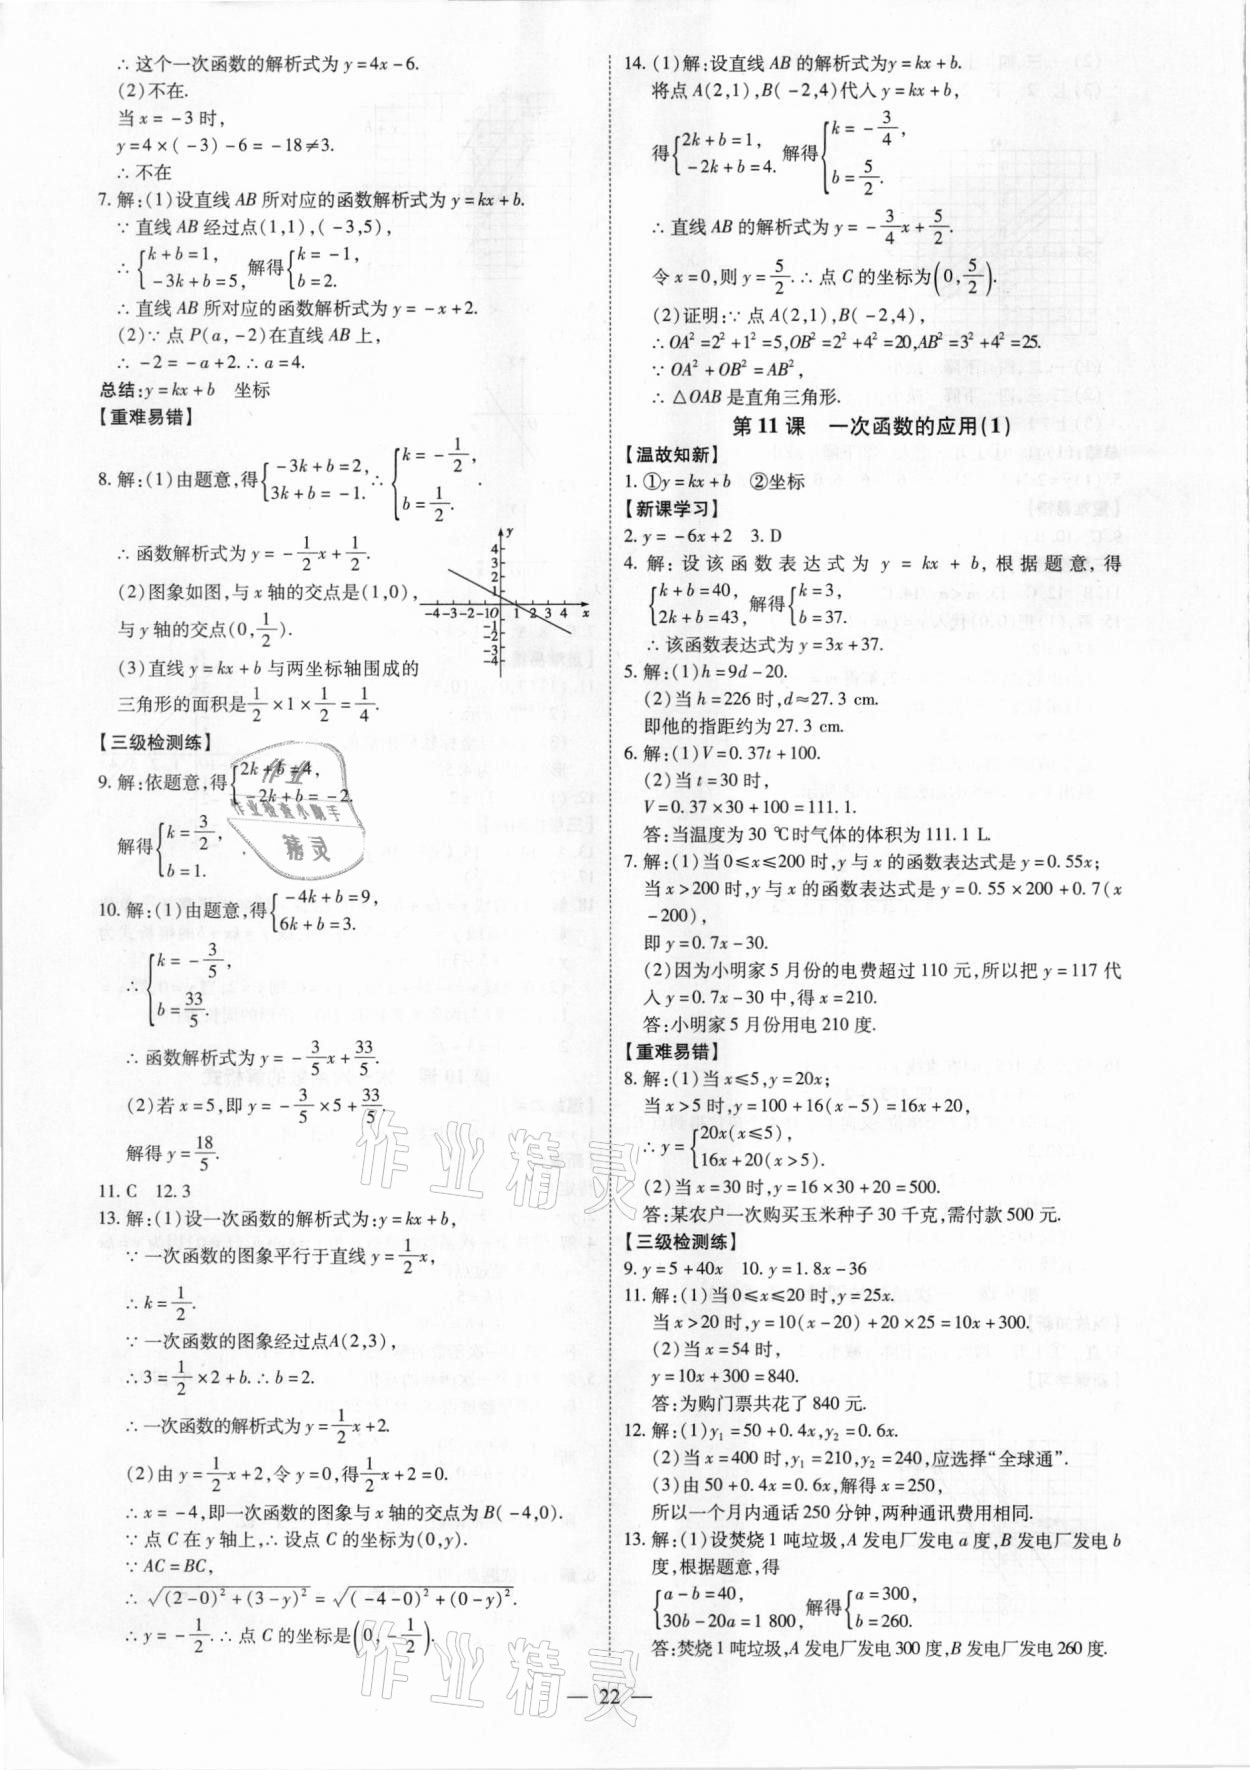 ∴ 这个一次函数的解析式为 y=4x-6.
(2)不在.
当 x=-3 时,
y=4×(-3)-6=-18≠3.
∴ 不在
7. 解:(1)设直线 AB 所对应的函数解析式为 y=kx+b.
∵ 直线 AB 经过点(1,1),(-3,5),
∴ {k+b=1, -3k+b=5, 解得{k=-1, b=2.
∴ 直线 AB 所对应的函数解析式为 y=-x+2.
(2)∵ 点 P(a,-2)在直线 AB 上,
∴ -2=-a+2. ∴ a=4.
总结:y=kx+b 坐标
【重难易错】
8. 解:(1)由题意,得{-3k+b=2, 3k+b=-1. ∴ {k=-1/2, b=1/2.
∴ 函数解析式为 y=-1/2x+1/2.
(2)图象如图,与 x 轴的交点是(1,0),
与 y 轴的交点(0,1/2).
(3)直线 y=kx+b 与两坐标轴围成的
三角形的面积是1/2×1×1/2=1/4.
y
4
3
2
1
-4 -3 -2 -1 O 1 2 3 4 x
-1
-2
-3
-4
【三级检测练】
9. 解:依题意,得{2k+b=4, -2k+b=-2.
解得{k=3/2, b=1.
作业
作业检查小助手
精灵
10. 解:(1)由题意,得{-4k+b=9, 6k+b=3.
∴ {k=-3/5, b=33/5.
∴ 函数解析式为 y=-3/5x+33/5.
(2)若 x=5,即 y=-3/5×5+33/5.
解得 y=18/5.
11. C 12. 3
13. 解:(1)设一次函数的解析式为:y=kx+b,
∵ 一次函数的图象平行于直线 y=1/2x,
∴ k=1/2.
∵ 一次函数的图象经过点A(2,3),
∴ 3=1/2×2+b. ∴ b=2.
∴ 一次函数的解析式为 y=1/2x+2.
(2)由 y=1/2x+2,令 y=0,得1/2x+2=0.
∴ x=-4,即一次函数的图象与 x 轴的交点为 B(-4,0).
∵ 点 C 在 y 轴上, ∴ 设点 C 的坐标为(0,y).
∵ AC=BC,
∴ √((2-0)²+(3-y)²)=√((-4-0)²+(0-y)²).
∴ y=-1/2. ∴ 点 C 的坐标是(0,-1/2).
14. (1)解:设直线 AB 的解析式为y=kx+b.
将点 A(2,1),B(-2,4)代入 y=kx+b,
得{2k+b=1, -2k+b=4. 解得{k=-3/4, b=5/2.
∴ 直线 AB 的解析式为 y=-3/4x+5/2.
令 x=0,则 y=5/2. ∴ 点 C 的坐标为(0,5/2).
(2)证明:∵ 点 A(2,1),B(-2,4),
∴ OA²=2²+1²=5,OB²=2²+4²=20,AB²=3²+4²=25.
∵ OA²+OB²=AB²,
∴ △OAB 是直角三角形.
第 11 课 一次函数的应用(1)
【温故知新】
1. ①y=kx+b ②坐标
【新课学习】
2. y=-6x+2 3. D
4. 解:设该函数表达式为 y=kx+b,根据题意,得
{k+b=40, 2k+b=43, 解得{k=3, b=37.
∴ 该函数表达式为 y=3x+37.
5. 解:(1)h=9d-20.
(2)当 h=226 时,d≈27.3 cm.
即他的指距约为 27.3 cm.
6. 解:(1)V=0.37t+100.
(2)当 t=30 时,
V=0.37×30+100=111.1.
答:当温度为 30 ℃时气体的体积为 111.1 L.
7. 解:(1)当 0≤x≤200 时,y 与 x 的函数表达式是 y=0.55x;
当 x>200 时,y 与 x 的函数表达式是 y=0.55×200+0.7(x
-200),
即 y=0.7x-30.
(2)因为小明家 5 月份的电费超过 110 元,所以把 y=117 代
入 y=0.7x-30 中,得 x=210.
答:小明家 5 月份用电 210 度.
【重难易错】
8. 解:(1)当 x≤5,y=20x;
当 x>5 时,y=100+16(x-5)=16x+20,
∴ y={20x(x≤5), 16x+20(x>5).
(2)当 x=30 时,y=16×30+20=500.
答:某农户一次购买玉米种子 30 千克,需付款 500 元.
【三级检测练】
9. y=5+40x 10. y=1.8x-36
11. 解:(1)当 0≤x≤20 时,y=25x.
当 x>20 时,y=10(x-20)+20×25=10x+300.
(2)当 x=54 时,
y=10x+300=840.
答:为购门票共花了 840 元.
12. 解:(1)y₁=50+0.4x,y₂=0.6x.
(2)当 x=400 时,y₁=210,y₂=240,应选择“全球通”.
(3)由 50+0.4x=0.6x,解得 x=250,
所以一个月内通话 250 分钟,两种通讯费用相同.
13. 解:(1)设焚烧 1 吨垃圾,A 发电厂发电 a 度,B 发电厂发电 b
度,根据题意,得
{a-b=40, 30b-20a=1 800, 解得{a=300, b=260.
答:焚烧 1 吨垃圾,A 发电厂发电 300 度,B 发电厂发电 260 度.
作业精灵
作业精灵
— 22 —